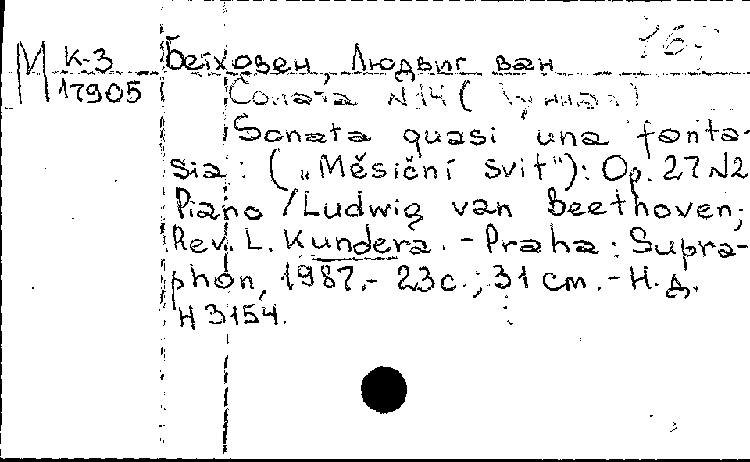 М К-3 Бетховен, Людвиг ван
17905 Соната N14 (Лунная)
Sonata quasi una fanta-
sia: („Měsíční svit"): Op. 27 N2
Piano / Ludwig van Beethoven;
Rev. L. Kundera. - Praha: Supra-
phon, 1987.- 23с.; 31 cm. - Н. д.
H 3154.